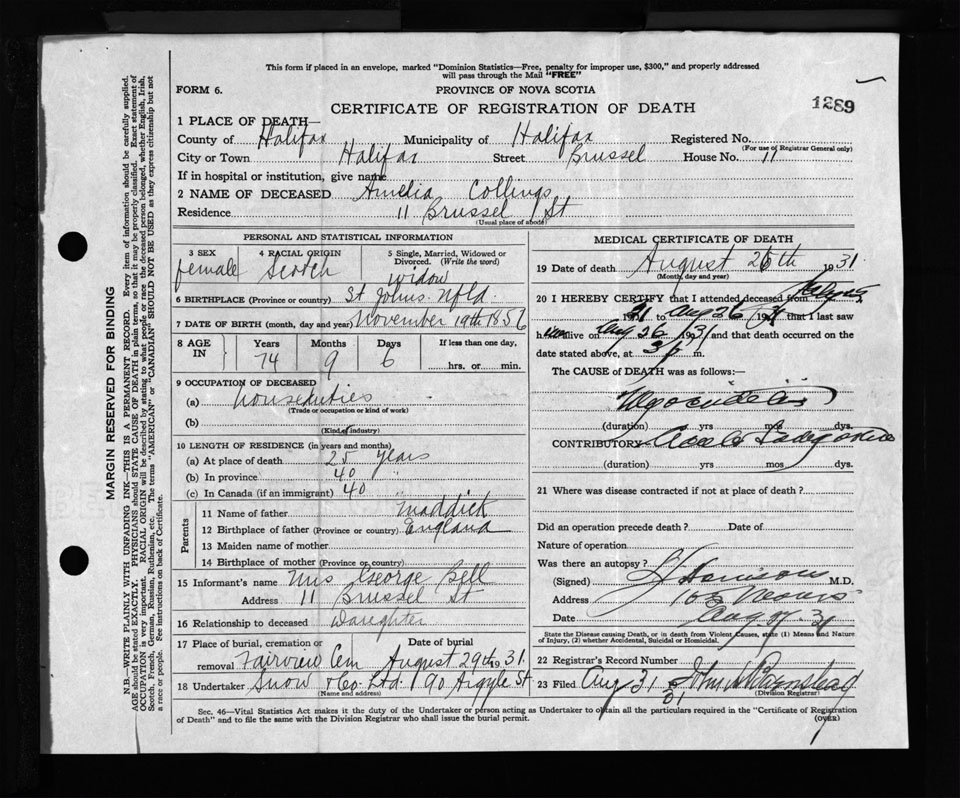 This form if placed in an envelope, marked "Dominion Statistics—Free, penalty for improper use, $300," and properly addressed
will pass through the Mail "FREE"
FORM 6.
PROVINCE OF NOVA SCOTIA
CERTIFICATE OF REGISTRATION OF DEATH
1289
1 PLACE OF DEATH—
County of Halifax Municipality of Halifax Registered No.
(For use of Registrar General only)
City or Town Halifax Street Brussel House No. 11
If in hospital or institution, give name
2 NAME OF DECEASED Amelia Collings
Residence 11 Brussel St
(Usual place of abode)
MARGIN RESERVED FOR BINDING
N.B.—WRITE PLAINLY WITH UNFADING INK—THIS IS A PERMANENT RECORD. Every item of information should be carefully supplied.
AGE should be stated EXACTLY. PHYSICIANS should STATE CAUSE OF DEATH in plain terms, so that it may be properly classified. Exact statement of
OCCUPATION is very important. RACIAL ORIGIN will be described by stating to what people or race the deceased person belonged, whether English, Irish,
Scotch, French, German, Russian, Ruthenian, etc. The terms "AMERICAN" or "CANADIAN" SHOULD NOT BE USED as they express citizenship but not
a race or people. See instructions on back of Certificate.
PERSONAL AND STATISTICAL INFORMATION
3 SEX female
4 RACIAL ORIGIN Scotch
5 Single, Married, Widowed or
Divorced. (Write the word)
widow
6 BIRTHPLACE (Province or country) St Johns Nfld.
7 DATE OF BIRTH (month, day and year) November 19th 1856
8 AGE IN
Years Months Days If less than one day,
74 9 6 hrs. or min.
9 OCCUPATION OF DECEASED
(a) Houseduties
(Trade or occupation or kind of work)
(b)
(Kind of industry)
10 LENGTH OF RESIDENCE (in years and months)
(a) At place of death 25 years
(b) In province 40 "
(c) In Canada (if an immigrant) 40 "
Parents
11 Name of father Maddick
12 Birthplace of father (Province or country) England
13 Maiden name of mother
14 Birthplace of mother (Province or country)
15 Informant's name Mrs George Bell
Address 11 Brussel St
16 Relationship to deceased Daughter
17 Place of burial, cremation or Date of burial
removal Fairview Cem August 29th 1931
18 Undertaker Snow & Co. Ltd. 90 Argyle St
(Name and address)
MEDICAL CERTIFICATE OF DEATH
19 Date of death August 26th 1931
(Month, day and year)
20 I HEREBY CERTIFY that I attended deceased from
31 to Aug 26 1931 that I last saw
h alive on Aug 26 1931 and that death occurred on the
date stated above, at 3 p m.
The CAUSE of DEATH was as follows:—
Myocarditis
(duration) yrs mos dys.
CONTRIBUTORY Acute
(duration) yrs mos dys.
21 Where was disease contracted if not at place of death?
Did an operation precede death? Date of
Nature of operation
Was there an autopsy?
(Signed) M.D.
Address
Date Aug 31
State the Disease causing Death, or in death from Violent Causes, state (1) Means and Nature
of Injury, (2) whether Accidental, Suicidal or Homicidal.
22 Registrar's Record Number
23 Filed Aug 31 31 John
(Division Registrar)
Sec. 46—Vital Statistics Act makes it the duty of the Undertaker or person acting as Undertaker to obtain all the particulars required in the "Certificate of Registration
of Death" and to file the same with the Division Registrar who shall issue the burial permit.
(OVER)